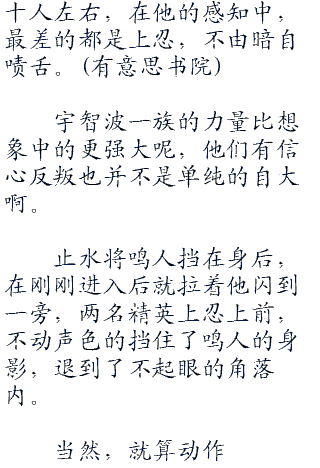 十人左右，在他的感知中，
最差的都是上忍，不由暗自
啧舌。(有意思书院)
宇智波一族的力量比想
象中的更强大呢，他们有信
心反叛也并不是单纯的自大
啊。
止水将鸣人挡在身后，
在刚刚进入后就拉着他闪到
一旁，两名精英上忍上前，
不动声色的挡住了鸣人的身
影，退到了不起眼的角落
内。
当然，就算动作